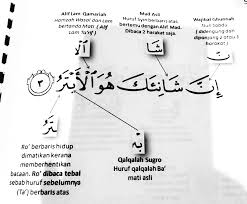 Alif Lam Qamariah
Hamzah Wasal dan Lam
bertanda Mati (Alif
Lam Ta'rif)
Mad Asli
Huruf Syin berbaris atas
bertemu dengan Alif Mad.
Dibaca 2 harakat saja.
Wajibal Ghunnah
Nun Sabdu
(didengung dan
dipanjang 2 atau 3
harakat)
الْ
شَا
نَّ
إِنَّ شَانِئَكَ هُوَ الْأَبْتَرُ ٣
تَرُ
بْ
Ro' berbaris hidup
dimatikan kerana
memberhentikan
bacaan. Ro' dibaca tebal
sebab huruf sebelumnya
(Ta') berbaris atas
Qalqalah Sugro
Huruf qalqalah Ba'
mati asli